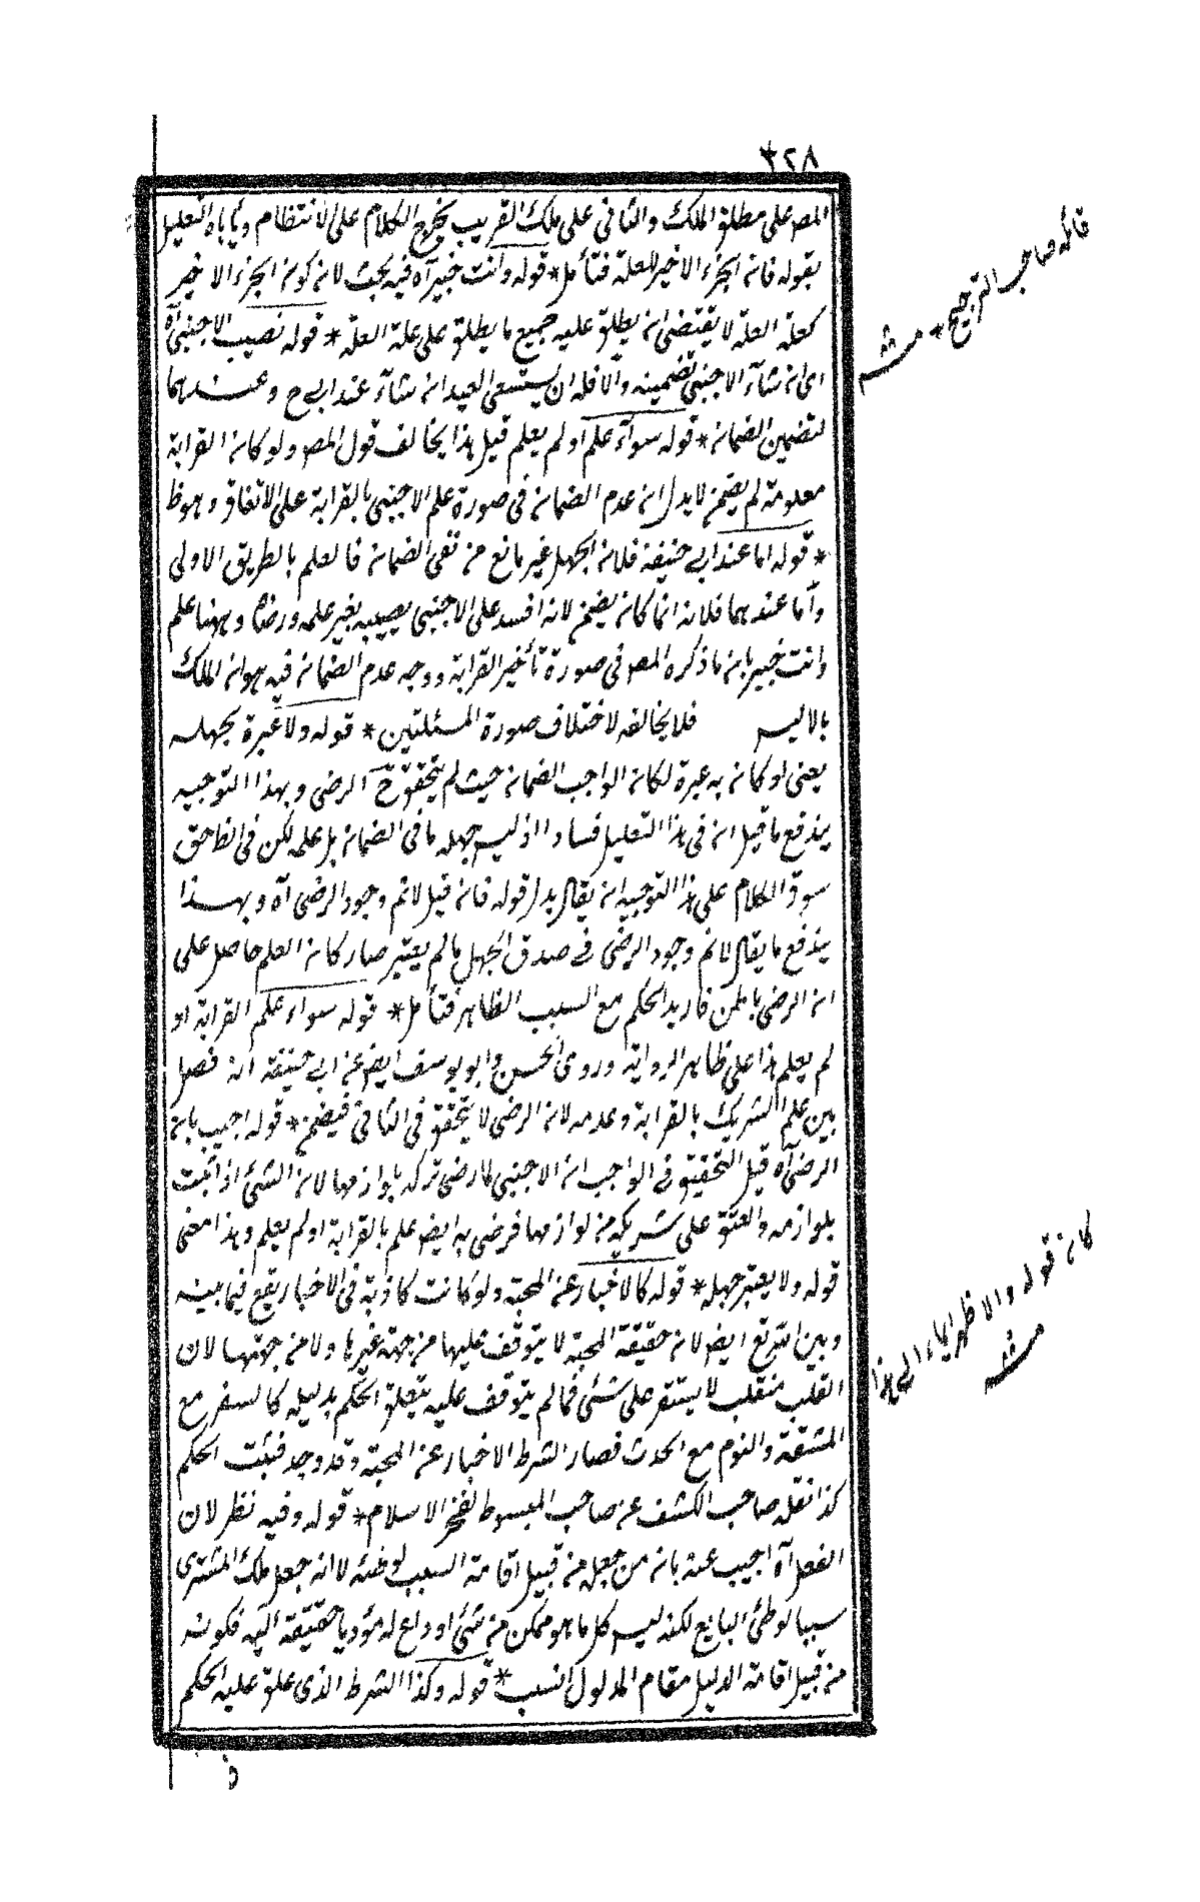 ٣٢٨
المص على مطلق الملك والثاني على ملك القريب يخرج الكلام على الانتظام ويأباه التعليل
بقوله فانه الجزء الاخير للعلة فتأمل * قوله وانت خبير آه فيه بحث لان كون الجزء الاخير
كعلة العلة لا يقتضى ان يطلق عليه جميع ما يطلق على علة العلة * قوله نصيب الاجنبى آه
اى ان شآء الاجنبى تضمينه والا فله ان يستسعى العبد ان شآء عند ابى ح وعندهما
لتضمين الضمان * قوله سوآء علم او لم يعلم قيل هذا يخالف قول المص ولو كان القرابة
معلومة لم يضمن لا يدل ان عدم الضمان فى صورة علم الاجنبى بالقرابة على الاتفاق وهو ظ
* قوله اما عند ابى حنيفة فلان الجهل غير مانع من نفى الضمان فالعلم بالطريق الاولى
وأما عندهما فلانه انما كان يضمن لانه افسد على الاجنبى نصيبه بغير علمه ورضاه وههنا علم
وانت خبير بان ما ذكره المص فى صورة تأخير القرابة ووجه عدم الضمان فيه هو ان الملك
فلا يخالفه لاختلاف صورة المسئلتين * قوله ولا عبرة بجهله
يعنى لو كان به عبرة لكان الواجب الضمان حيث لم يتحقق ح الرضى وبهذا التوجيه
يندفع ما قيل ان فى هذا التعليل فسادا اذ ليس جهله مافى الضمان بل علمه لكن فى الظ حق
سوق الكلام على هذا التوجيه ان يقال بدل قوله فان قيل لا نم وجود الرضى آه وبهذا
يندفع ما يقال لا نم وجود الرضى فى صدق الجهل ما لم يعتبر صار كان العلم حاصل على
ان الرضى باطن فاريد الحكم مع السبب الظاهر فتأمل * قوله سواء علم القرابة او
لم يعلم هذا على ظاهر الرواية وروى الحسن وابو يوسف ايض عن ابى حنيفة انه فصل
بين علم الشريك بالقرابة وعدمه لان الرضى لا يتحقق فى الثانى فيضمن * قوله اجيب بان
الرضى آه قيل التحقيق فى الواجب ان الاجنبى لما رضى تركه بلوازمها لان الشئ اذا ثبت
بلوازمه والعتق على شريكه من لوازمها فرضى به ايض علم بالقرابة او لم يعلم وهذا معنى
قوله ولا يعتبر جهله * قوله كالاخبار عن المحبة ولو كانت كاذبة فى الاخبار يقع فيما بينه
وبين الله تع ايض لان حقيقة المحبة لا يتوقف عليها من جهة غيرها ولا من جهتها لان
القلب منقلب لا يستقر على شئ فما لم يتوقف عليه يتعلق الحكم بدليله كالسفر مع
المشقة والنوم مع الحدث فصار الشرط الاخبار عن المحبة وقد وجد فثبت الحكم
كذا نقله صاحب الكشف عن صاحب المبسوط لفخر الاسلام * قوله وفيه نظر لان
الفعل آه اجيب عنه بان من جعله من قبيل اقامة السبب لانه جعل ملك المشترى
سببا لوطئ البايع لكنه ليس كل ما هو ممكن من شئ او داع له مؤديا حقيقة اليه فكونه
من قبيل اقامة الدليل مقام المدلول انسب * قوله وكذا الشرط الذى علق عليه الحكم
قائله صاحب الترجيح * منه
كان قوله والاظهر ايماء الى هذا
منه